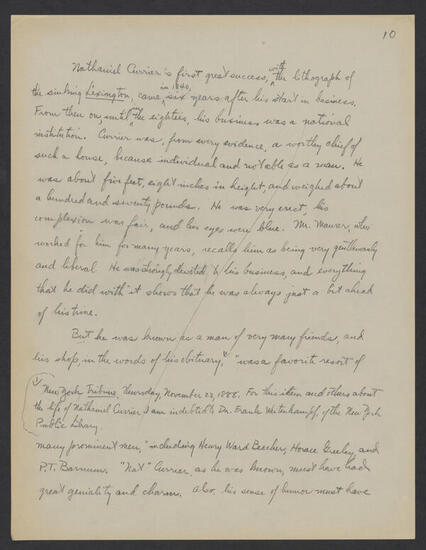 10
Nathaniel Currier's first great success, with the lithograph of
the sinking Lexington, came in 1840, six years after his start in business.
From then on, until the eighties, his business was a national
institution. Currier was, from every evidence, a worthy chief of
such a house, because individual and notable as a man. He
was about five feet, eight inches in height, and weighed about
a hundred and seventy pounds. He was very erect, his
complexion was fair, and his eyes were blue. Mr. Maurer, who
worked for him for many years, recalls him as being very gentlemanly
and liberal. He was strongly devoted to his business, and everything
that he did with it shows that he was always just a bit ahead
of his time.
But he was known as a man of very many friends, and
his shop, in the words of his obituary, "was a favorite resort of
New York Tribune, Thursday, November 22, 1888. For this item and others about
the life of Nathaniel Currier I am indebted to Dr. Frank Weitenkampf, of the New York
Public Library.
many prominent men," including Henry Ward Beecher, Horace Greeley, and
P.T. Barnum. "Nat" Currier, as he was known, must have had
great geniality and charm. Also, his sense of humor must have